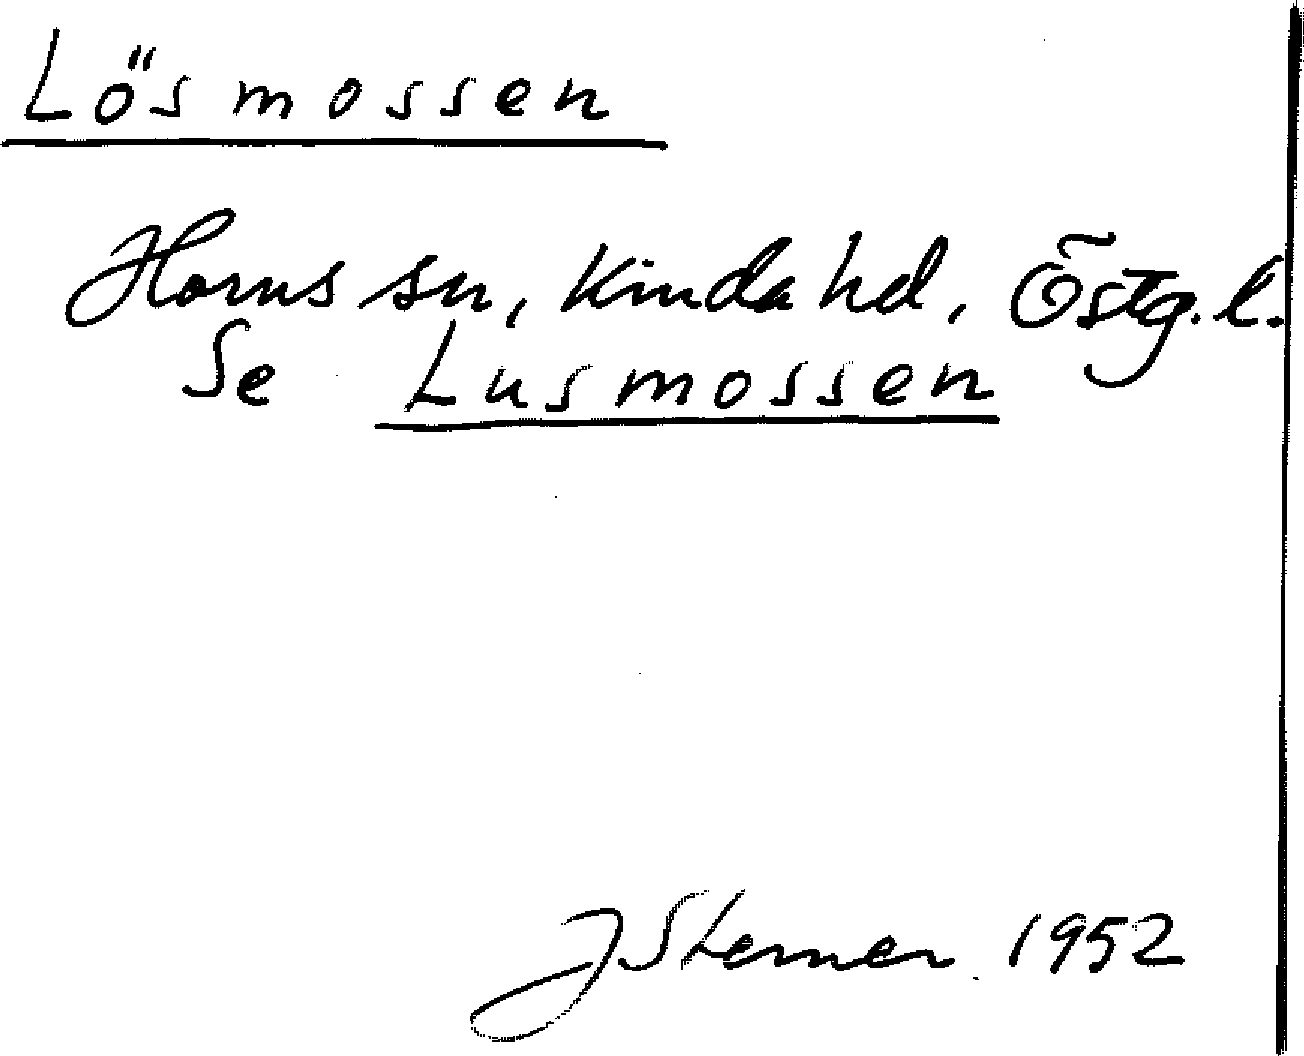 Lösmossen
Horns sn, Kinda hd, Östg. l.
Se Lusmossen
J Sterner 1952